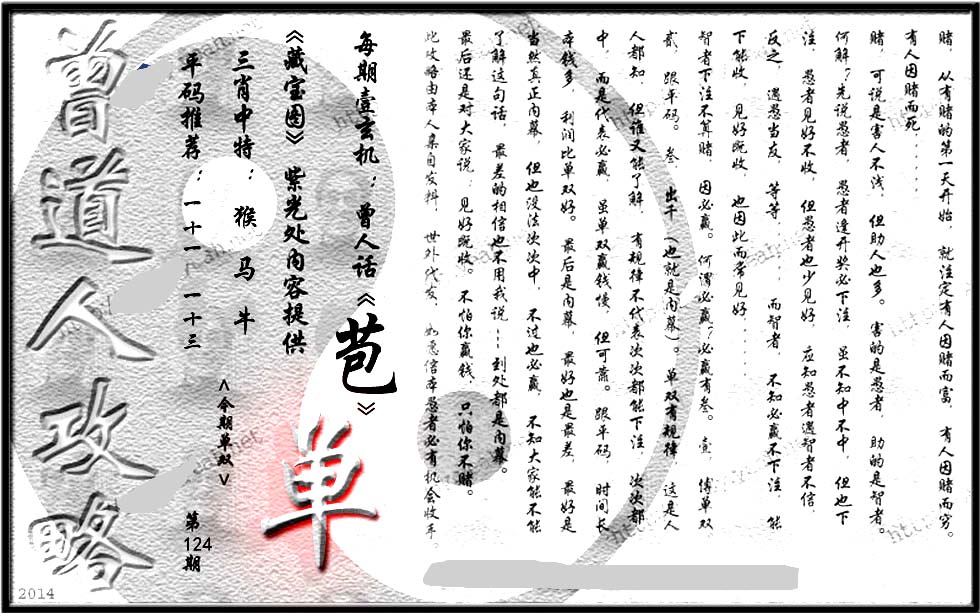 赌，从有赌的第一天开始，就注定有人因赌而富，有人因赌而穷。
有人因赌而死……
赌，可说是害人不浅，但助人也多。害的是愚者，助的是智者。
何解？先说愚者，愚者逢开奖必下注，虽不知中不中，但也下
注，愚者见好不收，但愚者也少见好，应知愚者遇智者不信，
反之，遇愚当友，等等……而智者，不知必赢不下注，能
下能收，见好既收，也因此而常见好……
智者下注不算赌，因必赢。何谓必赢？必赢有叁。壹，博单双
贰，跟平码。叁，出千（也就是内幕）。单双有规律，这是人
人都知，但谁又能了解，有规律不代表次次都能下注，次次都
中，而是代表必赢，虽单双赢钱慢，但可靠。跟平码，时间长
本钱多，利润比单双好。最后是内幕，最好也是最差，最好是
当然真正内幕，但也没法次次中，不过也必赢，不知大家能不
了解这句话，最差的相信也不用我说——到处都是内幕。
最后还是对大家说：见好既收。不怕你赢钱，只怕你不赌。
此攻略由本人集自发料，世外代友，如意信本愚者必有机会收手。
每期壹玄机：曾人话《苞》
《藏宝图》紫光处内容提供
三肖中特：猴 马 牛
平码推荐：一十一 一十三
<今期单双>
单
第
124
期
曾道人攻略
2014